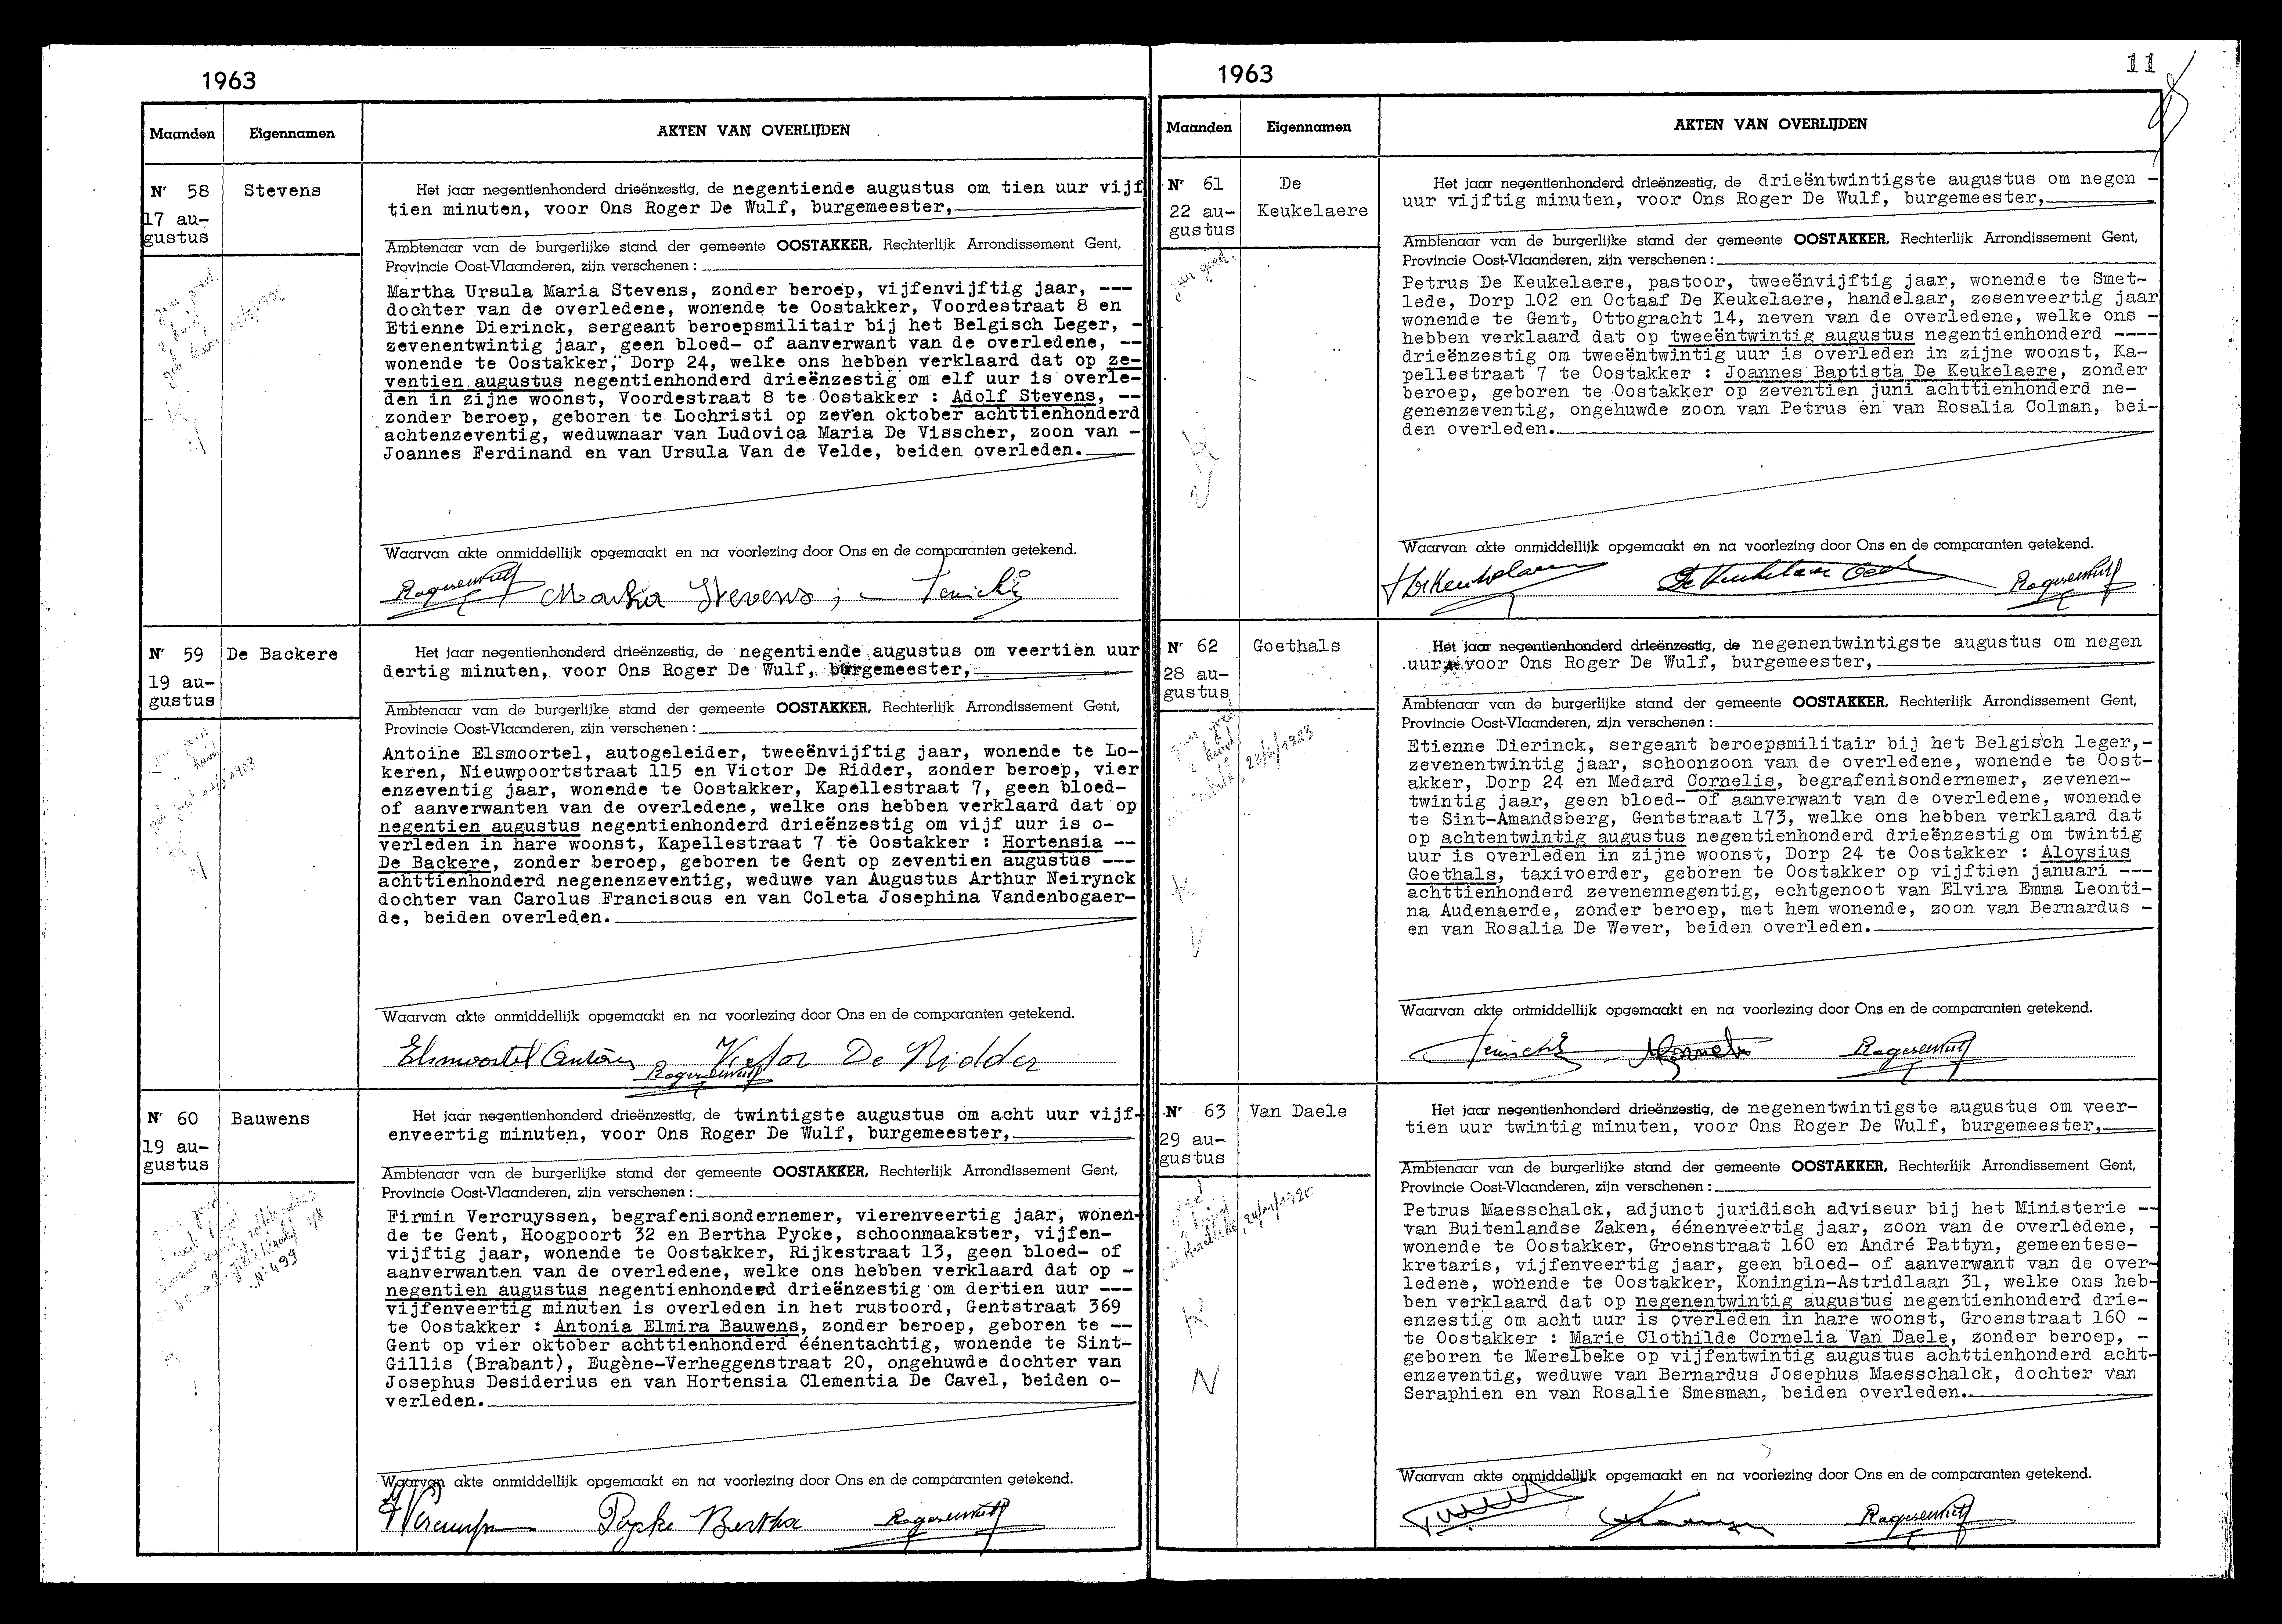 1963
Maanden Eigennamen AKTEN VAN OVERLIJDEN
Nr 58 Stevens
17 au-
gustus
Het jaar negentienhonderd drieënzestig, de negentiende augustus om tien uur vijf
tien minuten, voor Ons Roger De Wulf, burgemeester,
Ambtenaar van de burgerlijke stand der gemeente OOSTAKKER, Rechterlijk Arrondissement Gent,
Provincie Oost-Vlaanderen, zijn verschenen :
Martha Ursula Maria Stevens, zonder beroep, vijfenvijftig jaar, ---
dochter van de overledene, wonende te Oostakker, Voordestraat 8 en
Etienne Dierinck, sergeant beroepsmilitair bij het Belgisch Leger, -
zevenentwintig jaar, geen bloed- of aanverwant van de overledene, --
wonende te Oostakker, Dorp 24, welke ons hebben verklaard dat op ze-
ventien augustus negentienhonderd drieënzestig om elf uur is overle-
den in zijne woonst, Voordestraat 8 te Oostakker : Adolf Stevens, --
zonder beroep, geboren te Lochristi op zeven oktober achttienhonderd
achtenzeventig, weduwnaar van Ludovica Maria De Visscher, zoon van -
Joannes Ferdinand en van Ursula Van de Velde, beiden overleden.
Waarvan akte onmiddellijk opgemaakt en na voorlezing door Ons en de comparanten getekend.
Martha Stevens
Nr 59 De Backere
19 au-
gustus
Het jaar negentienhonderd drieënzestig, de negentiende augustus om veertien uur
dertig minuten, voor Ons Roger De Wulf, burgemeester,
Ambtenaar van de burgerlijke stand der gemeente OOSTAKKER, Rechterlijk Arrondissement Gent,
Provincie Oost-Vlaanderen, zijn verschenen :
Antoine Elsmoortel, autogeleider, tweeënvijftig jaar, wonende te Lo-
keren, Nieuwpoortstraat 115 en Victor De Ridder, zonder beroep, vier
enzeventig jaar, wonende te Oostakker, Kapellestraat 7, geen bloed-
of aanverwanten van de overledene, welke ons hebben verklaard dat op
negentien augustus negentienhonderd drieënzestig om vijf uur is o-
verleden in hare woonst, Kapellestraat 7 te Oostakker : Hortensia --
De Backere, zonder beroep, geboren te Gent op zeventien augustus ---
achttienhonderd negenenzeventig, weduwe van Augustus Arthur Neirynck
dochter van Carolus Franciscus en van Coleta Josephina Vandenbogaer-
de, beiden overleden.
Waarvan akte onmiddellijk opgemaakt en na voorlezing door Ons en de comparanten getekend.
Elsmoortel Antoine Victor De Ridder
Nr 60 Bauwens
19 au-
gustus
N° 499
Het jaar negentienhonderd drieënzestig, de twintigste augustus om acht uur vijf-
enveertig minuten, voor Ons Roger De Wulf, burgemeester,
Ambtenaar van de burgerlijke stand der gemeente OOSTAKKER, Rechterlijk Arrondissement Gent,
Provincie Oost-Vlaanderen, zijn verschenen :
Firmin Vercruyssen, begrafenisondernemer, vierenveertig jaar, wonen-
de te Gent, Hoogpoort 32 en Bertha Pycke, schoonmaakster, vijfen-
vijftig jaar, wonende te Oostakker, Rijkestraat 13, geen bloed- of
aanverwanten van de overledene, welke ons hebben verklaard dat op -
negentien augustus negentienhonderd drieënzestig om dertien uur ---
vijfenveertig minuten is overleden in het rustoord, Gentstraat 369
te Oostakker : Antonia Elmira Bauwens, zonder beroep, geboren te --
Gent op vier oktober achttienhonderd éénentachtig, wonende te Sint-
Gillis (Brabant), Eugène-Verheggenstraat 20, ongehuwde dochter van
Josephus Desiderius en van Hortensia Clementia De Cavel, beiden o-
verleden.
Waarvan akte onmiddellijk opgemaakt en na voorlezing door Ons en de comparanten getekend.
Pycke Bertha
1963
11
Maanden Eigennamen AKTEN VAN OVERLIJDEN
Nr 61 De
Keukelaere
22 au-
gustus
Het jaar negentienhonderd drieënzestig, de drieëntwintigste augustus om negen -
uur vijftig minuten, voor Ons Roger De Wulf, burgemeester,
Ambtenaar van de burgerlijke stand der gemeente OOSTAKKER, Rechterlijk Arrondissement Gent,
Provincie Oost-Vlaanderen, zijn verschenen :
Petrus De Keukelaere, pastoor, tweeënvijftig jaar, wonende te Smet-
lede, Dorp 102 en Octaaf De Keukelaere, handelaar, zesenveertig jaar
wonende te Gent, Ottogracht 14, neven van de overledene, welke ons -
hebben verklaard dat op tweeëntwintig augustus negentienhonderd ----
drieënzestig om tweeëntwintig uur is overleden in zijne woonst, Ka-
pellestraat 7 te Oostakker : Joannes Baptista De Keukelaere, zonder
beroep, geboren te Oostakker op zeventien juni achttienhonderd ne-
genenzeventig, ongehuwde zoon van Petrus en van Rosalia Colman, bei-
den overleden.
Waarvan akte onmiddellijk opgemaakt en na voorlezing door Ons en de comparanten getekend.
Nr 62 Goethals
28 au-
gustus
Het jaar negentienhonderd drieënzestig, de negenentwintigste augustus om negen
uur voor Ons Roger De Wulf, burgemeester,
Ambtenaar van de burgerlijke stand der gemeente OOSTAKKER, Rechterlijk Arrondissement Gent,
Provincie Oost-Vlaanderen, zijn verschenen :
Etienne Dierinck, sergeant beroepsmilitair bij het Belgisch leger,-
zevenentwintig jaar, schoonzoon van de overledene, wonende te Oost-
akker, Dorp 24 en Medard Cornelis, begrafenisondernemer, zevenen-
twintig jaar, geen bloed- of aanverwant van de overledene, wonende
te Sint-Amandsberg, Gentstraat 173, welke ons hebben verklaard dat
op achtentwintig augustus negentienhonderd drieënzestig om twintig
uur is overleden in zijne woonst, Dorp 24 te Oostakker : Aloysius
Goethals, taxivoerder, geboren te Oostakker op vijftien januari ---
achttienhonderd zevenennegentig, echtgenoot van Elvira Emma Leonti-
na Audenaerde, zonder beroep, met hem wonende, zoon van Bernardus -
en van Rosalia De Wever, beiden overleden.
Waarvan akte onmiddellijk opgemaakt en na voorlezing door Ons en de comparanten getekend.
Nr 63 Van Daele
29 au-
gustus
K
N
Het jaar negentienhonderd drieënzestig, de negenentwintigste augustus om veer-
tien uur twintig minuten, voor Ons Roger De Wulf, burgemeester,
Ambtenaar van de burgerlijke stand der gemeente OOSTAKKER, Rechterlijk Arrondissement Gent,
Provincie Oost-Vlaanderen, zijn verschenen :
Petrus Maesschalck, adjunct juridisch adviseur bij het Ministerie --
van Buitenlandse Zaken, éénenveertig jaar, zoon van de overledene, -
wonende te Oostakker, Groenstraat 160 en André Pattyn, gemeentese-
kretaris, vijfenveertig jaar, geen bloed- of aanverwant van de over-
ledene, wonende te Oostakker, Koningin-Astridlaan 31, welke ons heb-
ben verklaard dat op negenentwintig augustus negentienhonderd drie-
enzestig om acht uur is overleden in hare woonst, Groenstraat 160 -
te Oostakker : Marie Clothilde Cornelia Van Daele, zonder beroep, -
geboren te Merelbeke op vijfentwintig augustus achttienhonderd acht-
enzeventig, weduwe van Bernardus Josephus Maesschalck, dochter van
Seraphien en van Rosalie Smesman, beiden overleden.
Waarvan akte onmiddellijk opgemaakt en na voorlezing door Ons en de comparanten getekend.